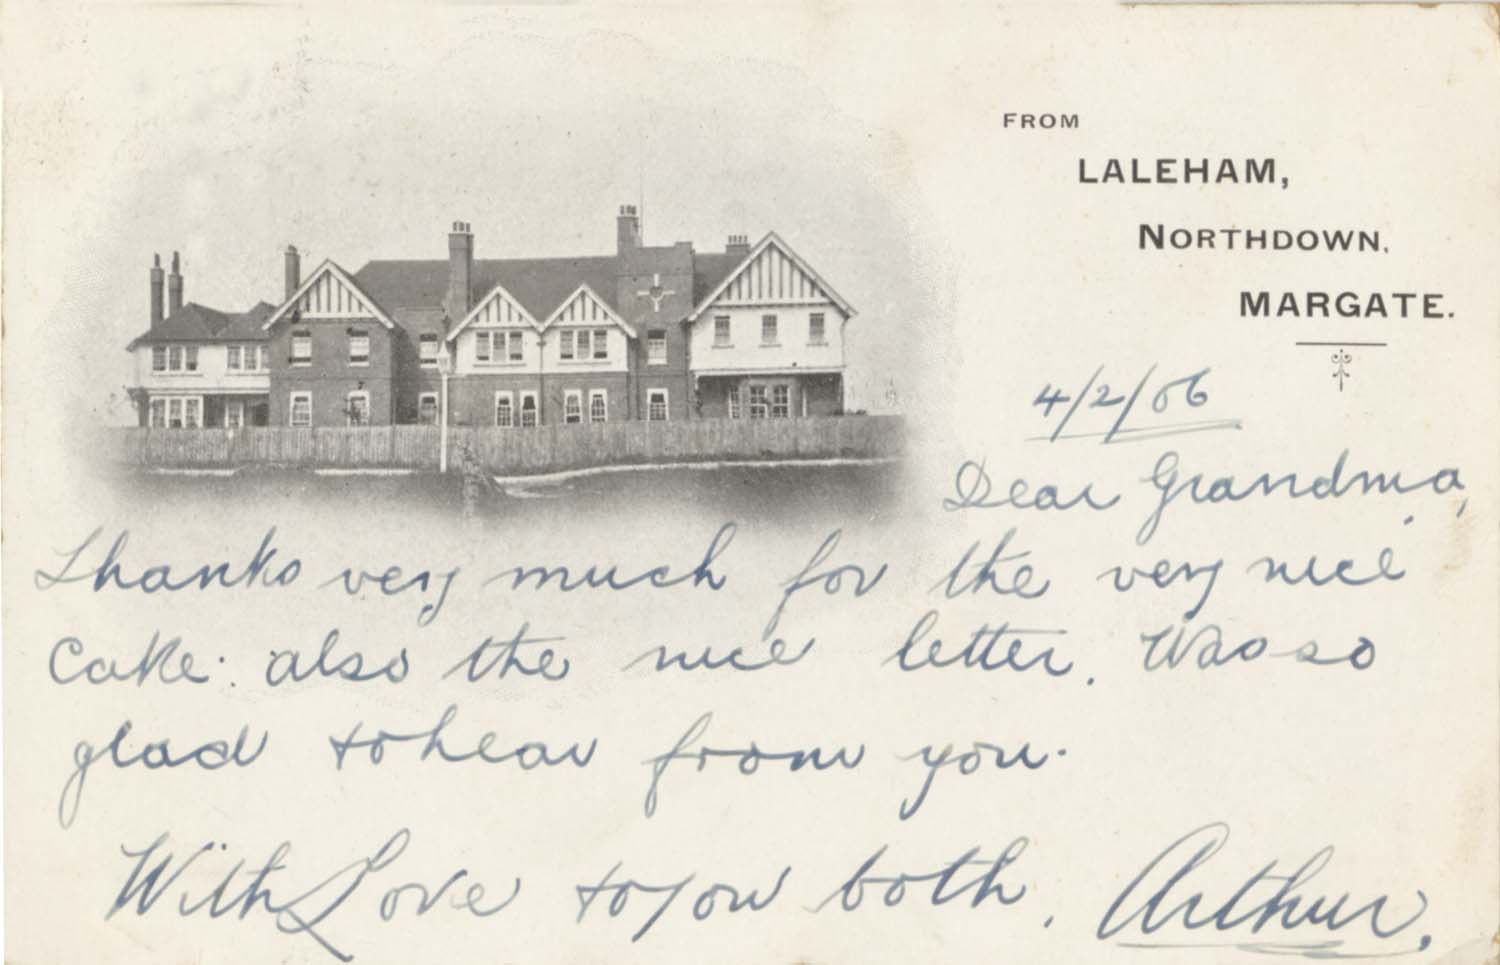 FROM
LALEHAM,
NORTHDOWN,
MARGATE.
4/2/06
Dear Grandma,
Thanks very much for the very nice
cake. also the nice letter. Was so
glad to hear from you.
With Love to you both. Arthur.